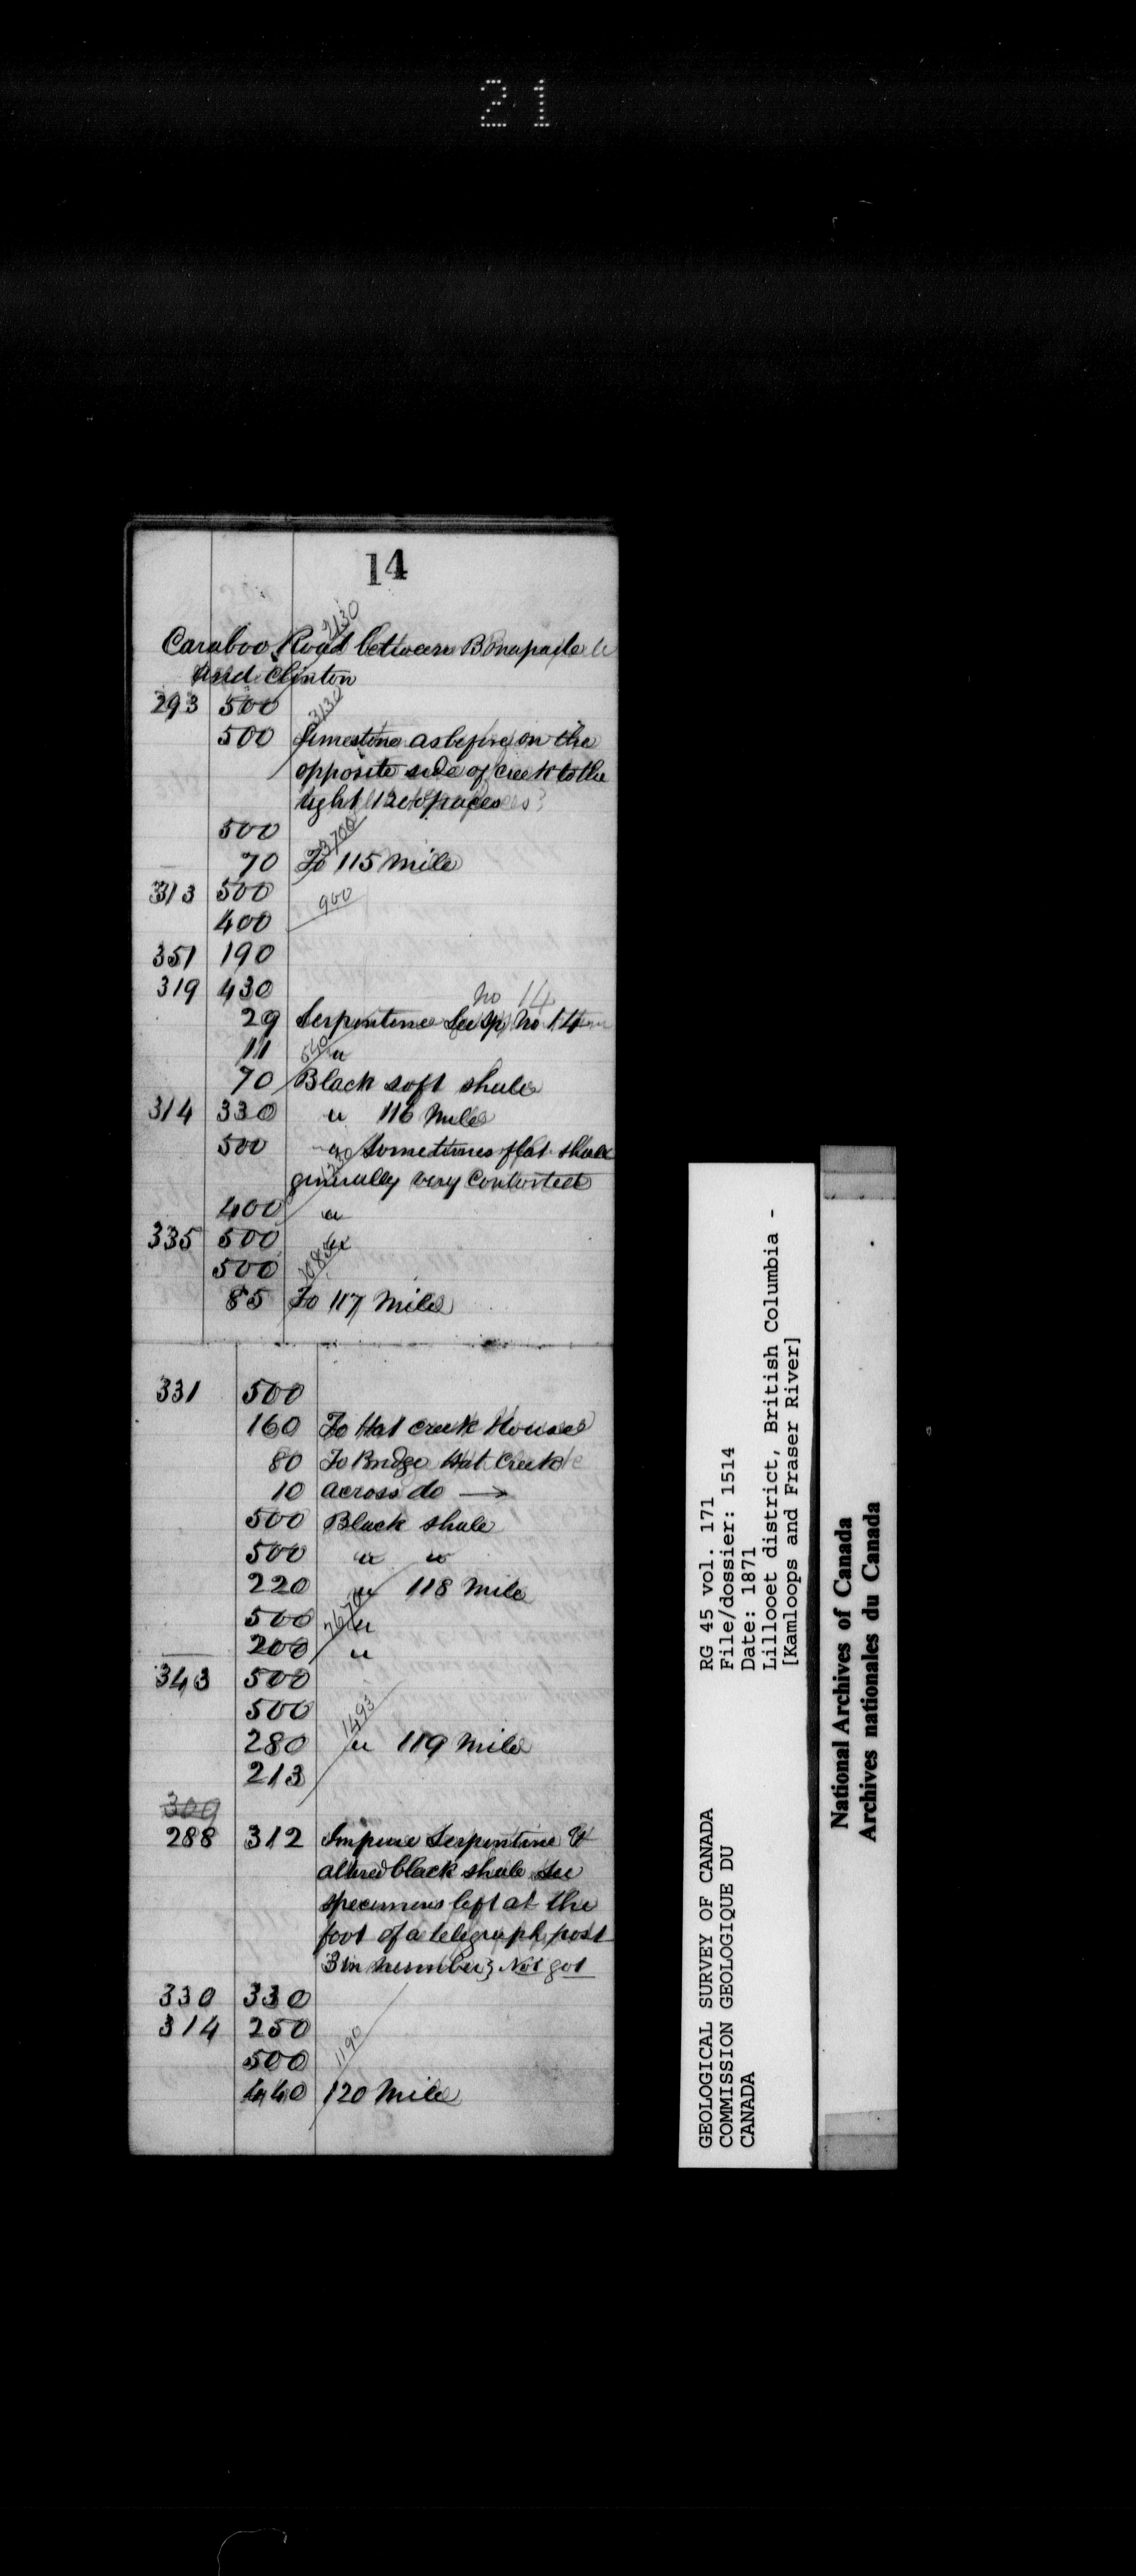 21
14
2130
Caraboo Road between Bonaparte
and Clinton
293 500
3130
500 Limestone as before on the
opposite side of creek to the
right 1200 paces
500
3700
70 To 115 Mile
313 500
900
400
351 190
319 430
no 14
29 Serpentine See Sp. No 14
11 540 "
70 Black soft shale
314 330 " 116 Mile
500 " Sometimes flat shale
1230
generally very Contorted
400 "
335 500 "
500 1085
85 To 117 Mile
331 500
160 To Hat creek House
80 To Bridge Hat Creek
10 across do →
500 Black shale
500 " "
220 " 118 Mile
500 2670 "
200 "
343 500
500
1493
280 " 119 Mile
213
309
288 312 Impure Serpentine &
altered black shale see
specimens left at the
foot of a telegraph post
3 in number; Not got
330 330
314 250
1190
500
440 120 Mile
GEOLOGICAL SURVEY OF CANADA
COMMISSION GEOLOGIQUE DU
CANADA
RG 45 vol. 171
File/dossier: 1514
Date: 1871
Lillooet district, British Columbia -
[Kamloops and Fraser River]
National Archives of Canada
Archives nationales du Canada